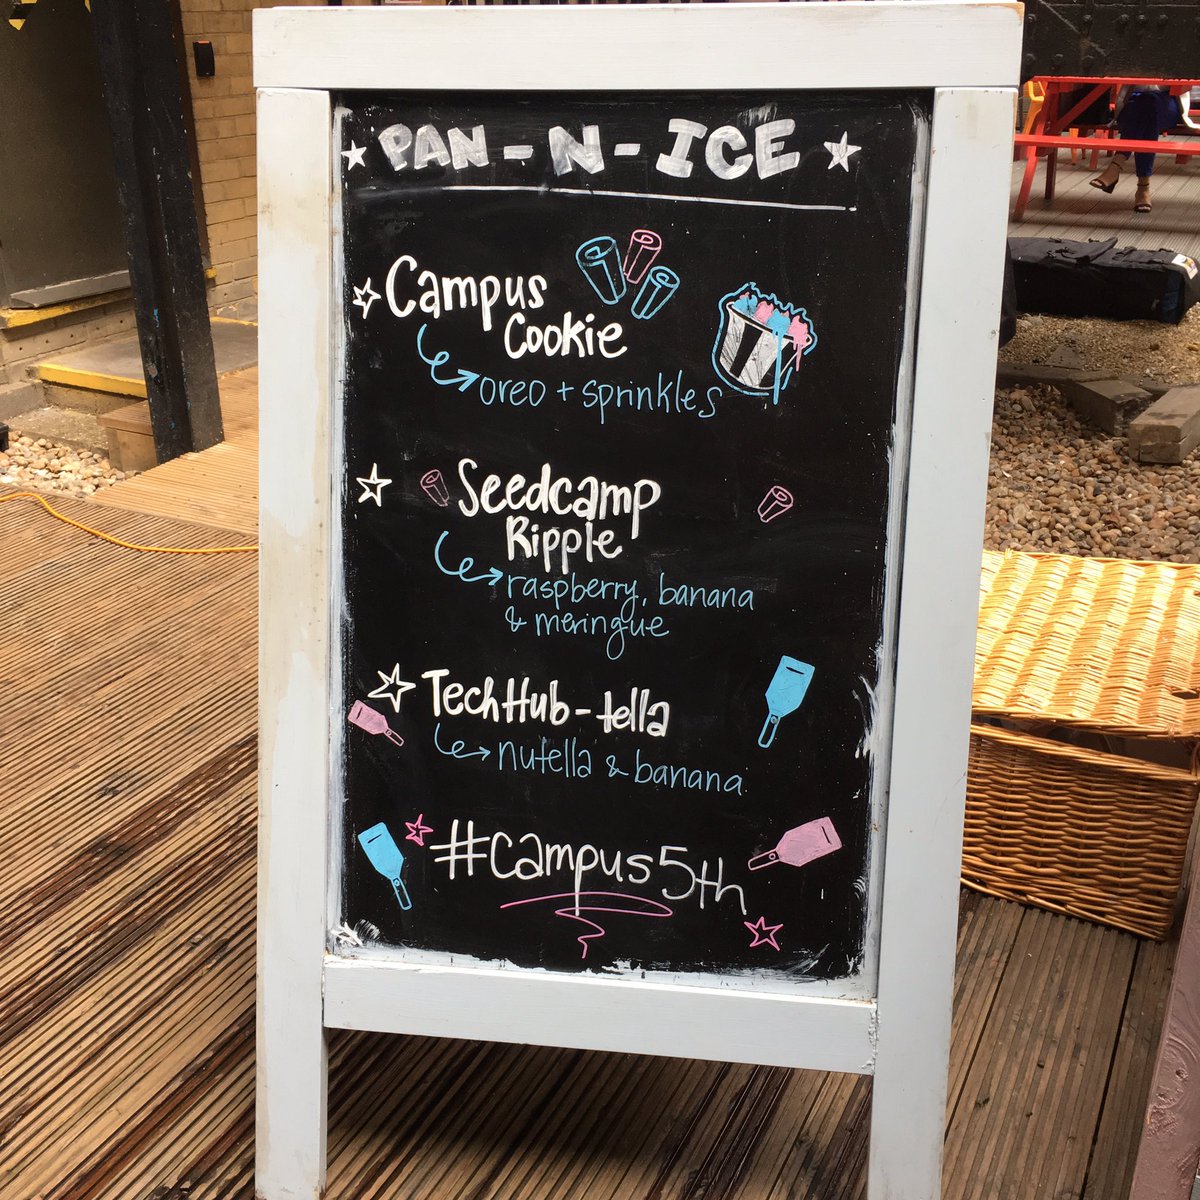 PAN-N-ICE
Campus
Cookie
oreo + sprinkles
Seedcamp
Ripple
raspberry, banana
& meringue
TechHub-tella
nutella & banana
#campus5th